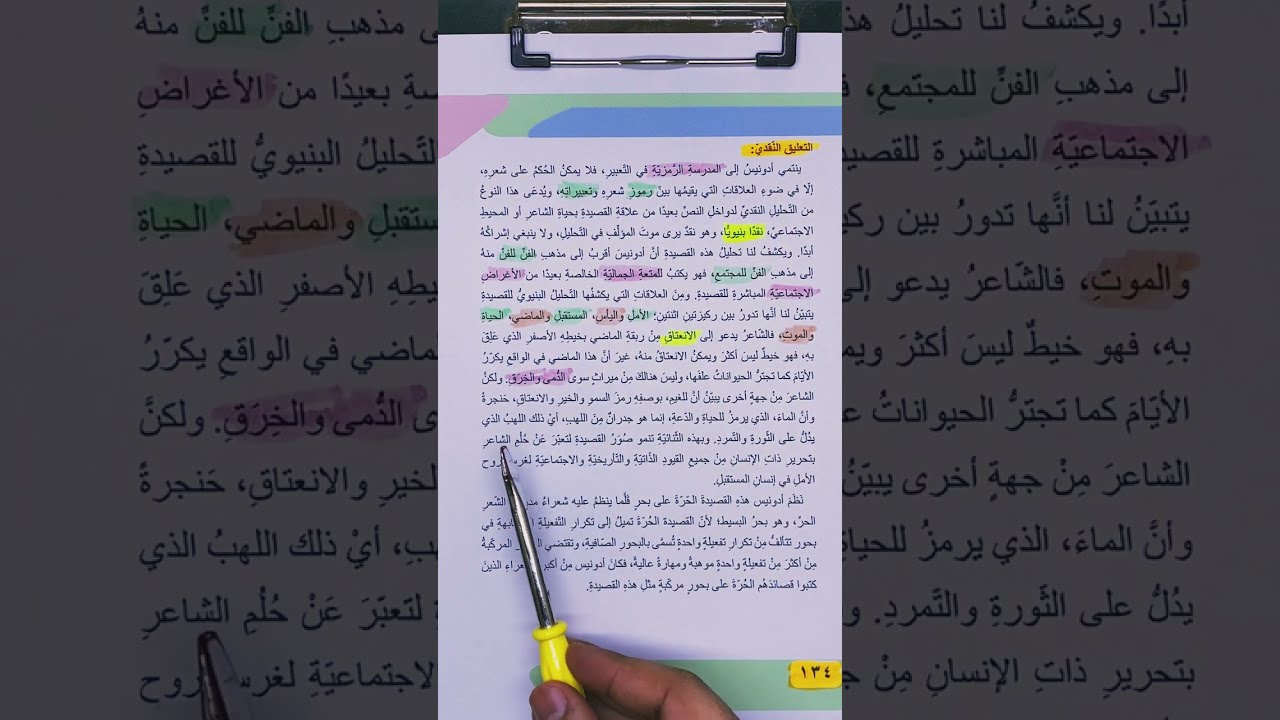 التعليق النّقديّ:
ينتمي أدونيسُ إلى المدرسةِ الرَّمزيّةِ في التَّعبيرِ، فلا يمكنُ الحُكمُ على شعرهِ،
إلّا في ضوءِ العلاقاتِ التي يقيمُها بينَ رموزِ شعرهِ وتعبيراتِهِ، ويُدعَى هذا النوعُ
من التَّحليلِ النقديِّ لدواخلِ النصِّ بعيدًا من علاقةِ القصيدةِ بحياةِ الشاعرِ أو المحيطِ
الاجتماعيِّ، نقدًا بنيويًّا، وهو نقدٌ يرى موتَ المؤلِّفِ في التَّحليلِ، ولا ينبغي إشراكُهُ
أبدًا. ويكشفُ لنا تحليلُ هذه القصيدةِ أنَّ أدونيسَ أقربُ إلى مذهبِ الفنِّ للفنِّ منهُ
إلى مذهبِ الفنِّ للمجتمعِ، فهو يكتبُ للمتعةِ الجماليّةِ الخالصةِ بعيدًا من الأغراضِ
الاجتماعيّةِ المباشرةِ للقصيدةِ. ومِنَ العلاقاتِ التي يكشفُها التَّحليلُ البنيويُّ للقصيدةِ
يتبيّنُ لنا أنَّها تدورُ بين ركيزتينِ اثنتينِ؛ الأملِ واليأسِ، المستقبلِ والماضي، الحياةِ
والموتِ، فالشّاعرُ يدعو إلى الانعتاقِ مِنْ ربقةِ الماضي بخيطِهِ الأصفرِ الذي عَلِقَ
بهِ، فهو خيطٌ ليسَ أكثرَ ويمكنُ الانعتاقُ منهُ، غيرَ أنَّ هذا الماضي في الواقعِ يكرّرُ
الأيّامَ كما تجترُّ الحيواناتُ علفَها، وليسَ هنالكَ مِنْ ميراثٍ سوى الدُّمى والخِرَقِ. ولكنَّ
الشاعرَ مِنْ جهةٍ أخرى يبيّنُ أنَّ للغيمِ، بوصفِهِ رمزَ السموِ والخيرِ والانعتاقِ، حَنجرةً
وأنَّ الماءَ، الذي يرمزُ للحياةِ والدَّعةِ، إنما هو جدرانٌ مِنَ اللهبِ، أيْ ذلك اللهبُ الذي
يدُلُّ على الثَّورةِ والتَّمردِ. وبهذه الثّنائيّةِ تنمو صُوَرُ القصيدةِ لتعبّرَ عَنْ حُلُمِ الشاعرِ
بتحريرِ ذاتِ الإنسانِ مِنْ جميعِ القيودِ الذّاتيّةِ والتّأريخيّةِ والاجتماعيّةِ لغرسِ روح
الأملِ في إنسانِ المستقبلِ.
نَظَمَ أدونيس هذهِ القصيدةَ الحُرّةَ على بحرٍ قلَّما ينظمُ عليه شعراءُ الشّعرِ
الحرِّ، وهو بحرُ البسيط؛ لأنَّ القصيدةَ الحُرّةَ تميلُ إلى تكرارِ التّفعيلةِ في
بحورٍ تتألفُ مِنْ تكرارِ تفعيلةٍ واحدةٍ تُسمَّى بالبحورِ الصّافيةِ، وتقتضي المركّبةُ
مِنْ أكثرَ مِنْ تفعيلةٍ واحدةٍ موهبةً ومهارةً عاليةً، فكانَ أدونيس مِنْ أكبرِ الذينَ
كتبوا قصائدَهُم الحُرّةَ على بحورٍ مركّبةٍ مثلِ هذهِ القصيدةِ.
١٣٤